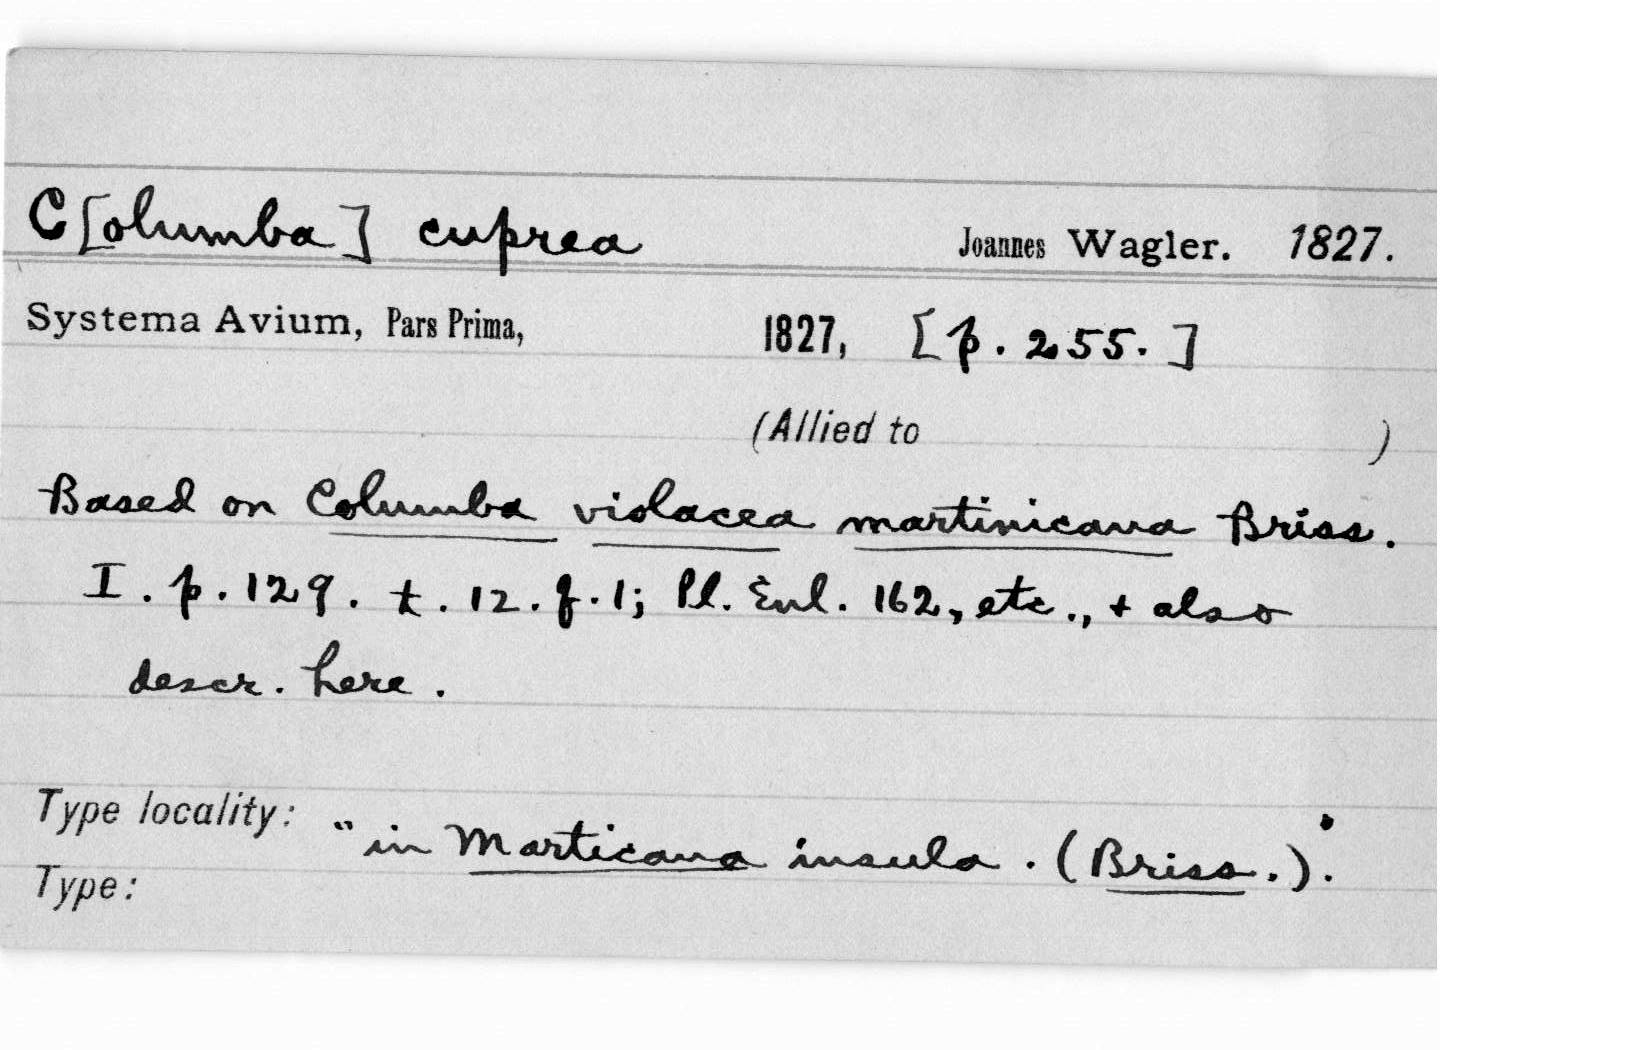 C[olumba] cuprea Joannes Wagler. 1827.
Systema Avium, Pars Prima, 1827, [p. 255.]
(Allied to )
Based on Columba violacea martinicana Briss.
I. p. 129. t. 12. f. 1; Pl. Enl. 162, etc., + also
descr. here.
Type locality: "in Marticana insula. (Briss.)."
Type: